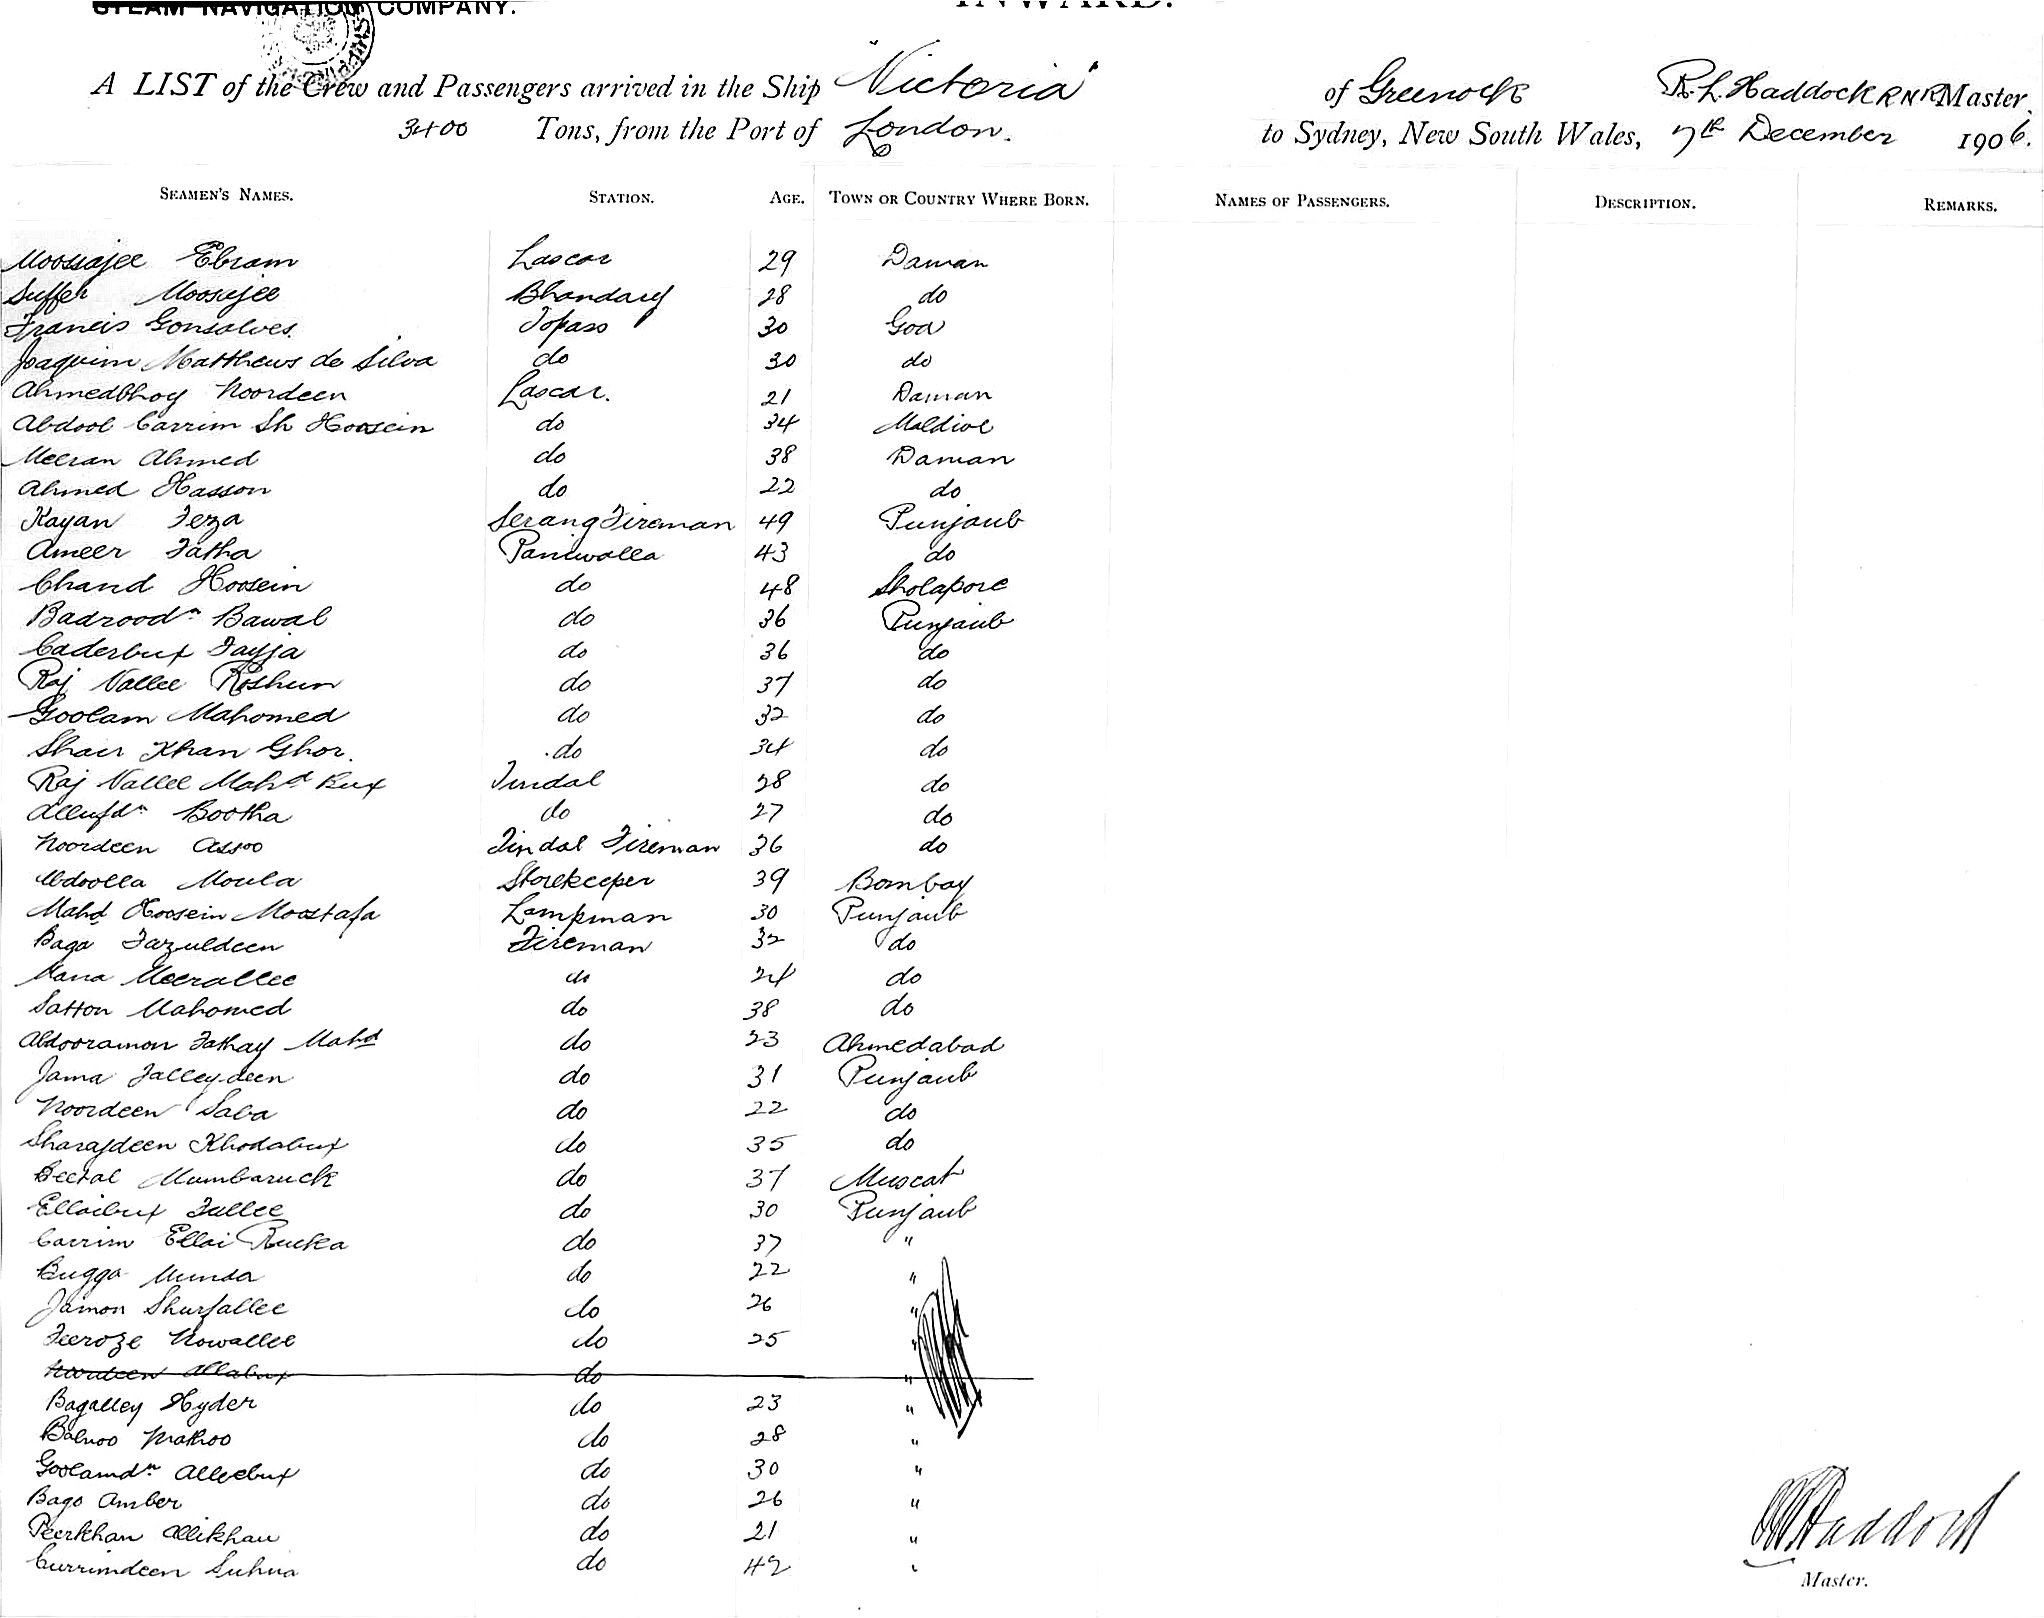 STEAM NAVIGATION COMPANY. INWARD.
A LIST of the Crew and Passengers arrived in the Ship "Victoria" of Greenock R. L. Haddock RNR Master,
3400 Tons, from the Port of London. to Sydney, New South Wales, 7th December 1906.
SEAMEN'S NAMES. STATION. AGE. TOWN OR COUNTRY WHERE BORN. NAMES OF PASSENGERS. DESCRIPTION. REMARKS.
Moosajee Ebram Lascar 29 Daman
Suffer Moosajee Bhandary 28 do
Francis Gonsalves. Topass 30 Goa
Joaquim Matthews de Silva do 30 do
Ahmedbhoy Noordeen Lascar. 21 Daman
Abdool Carrim Sh Hoosein do 34 Maldive
Meeran Ahmed do 38 Daman
Ahmed Hasson do 22 do
Kayan Feza Serang Fireman 49 Punjaub
Ameer Fatha Paniwalla 43 do
Chand Hoosein do 48 Sholapore
Badroodn Bawal do 36 Punjaub
Caderbux Fayja do 36 do
Raj Vallee Roshun do 37 do
Goolam Mahomed do 32 do
Shair Khan Ghor. do 34 do
Raj Vallee Mahd Bux Tindal 28 do
Allufdn Bootha do 27 do
Noordeen Assoo Tindal Fireman 36 do
Abdoolla Moula Storekeeper 39 Bombay
Mahd Hoosein Moostafa Lampman 30 Punjaub
Baga Fazuldeen Fireman 32 do
Nana Meerallee do 24 do
Satton Mahomed do 38 do
Abdooramon Fathay Mahd do 23 Ahmedabad
Jama Jalleydeen do 31 Punjaub
Noordeen Saba do 22 do
Sharafdeen Khodabux do 35 do
Beetal Mumbaruck do 37 Muscat
Ellaibux Fullee do 30 Punjaub
Carrim Ellai Rucka do 37 "
Bugga Munda do 22 "
Jamon Shurfallee do 26 "
Feeroze Nowallee do 25 "
Noordeen Allabux do "
Bagalley Hyder do 23 "
Balnoo Mathoo do 28 "
Goolamdn Alleebux do 30 "
Bago Amber do 26 "
Peerkhan Allikhan do 21 "
Currimdeen Suhna do 42 "
R L Haddock
Master.